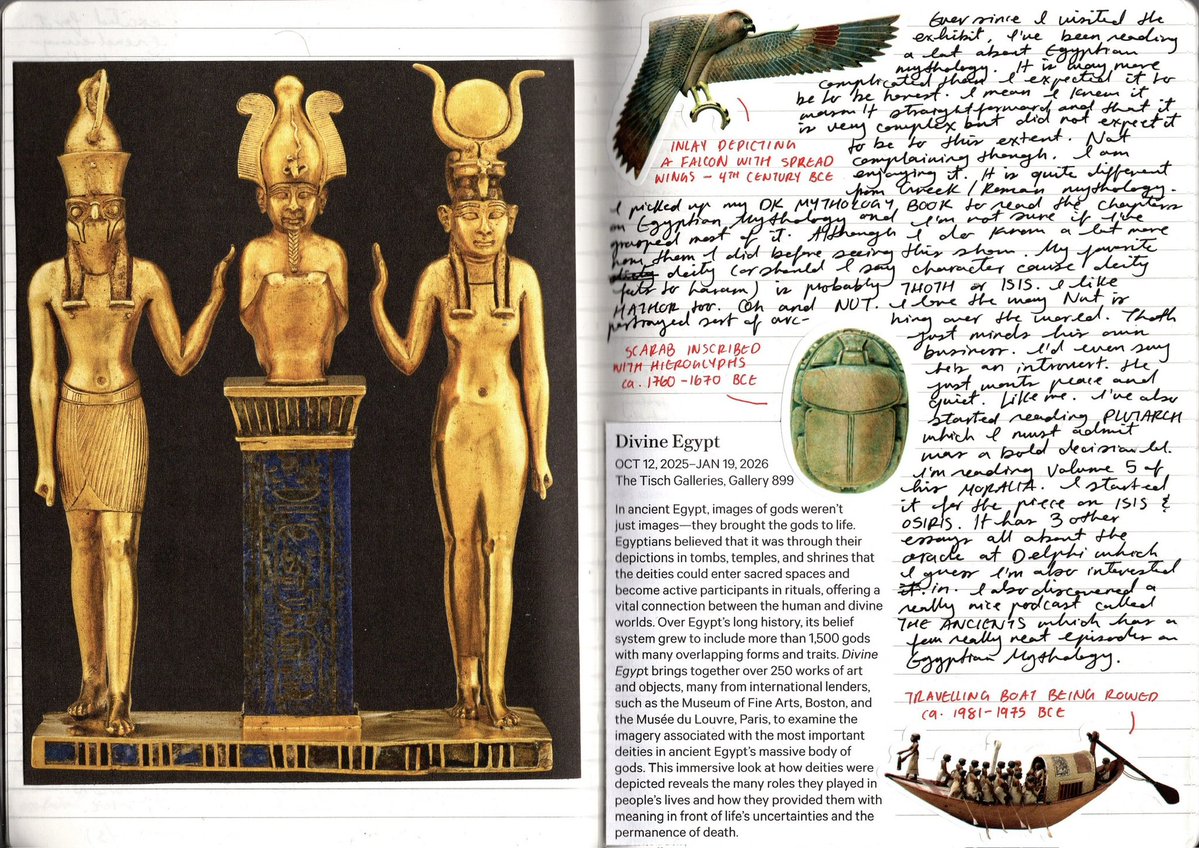 Ever since I visited the
exhibit, I've been reading
a lot about Egyptian
mythology. It is way more
complicated than I expected it to
be to be honest. I mean I knew it
wasn't straightforward and that it
is very complex but did not expect it
to be to this extent. Not
complaining though. I am
enjoying it. It is quite different
from Greek/Roman mythology.
I picked up my DK MYTHOLOGY BOOK to read the chapters
on Egyptian Mythology and I'm not sure if I've
grasped most of it. Although I do know a lot more
now them I did before seeing this show. My favorite
deity (or should I say character cause deity
feels so haram) is probably THOTH or ISIS. I like
HATHOR too. Oh and NUT. I love the way Nut is
portrayed sort of arc-
hing over the world. Thoth
just minds his own
business. I'd even say
he's an introvert. He
just wants peace and
quiet. Like me. I've also
started reading PLUTARCH
which I must admit
was a bold decision lol.
I'm reading Volume 5 of
his MORALIA. I started
it for the piece on ISIS &
OSIRIS. It has 3 other
essays all about the
oracle at Delphi which
I guess I'm also interested
in. I also discovered a
really nice podcast called
THE ANCIENTS which has a
few really neat episodes on
Egyptian Mythology.
INLAY DEPICTING
A FALCON WITH SPREAD
WINGS – 4TH CENTURY BCE
SCARAB INSCRIBED
WITH HIEROGLYPHS
ca. 1760 – 1670 BCE
Divine Egypt
OCT 12, 2025–JAN 19, 2026
The Tisch Galleries, Gallery 899
In ancient Egypt, images of gods weren't
just images—they brought the gods to life.
Egyptians believed that it was through their
depictions in tombs, temples, and shrines that
the deities could enter sacred spaces and
become active participants in rituals, offering a
vital connection between the human and divine
worlds. Over Egypt's long history, its belief
system grew to include more than 1,500 gods
with many overlapping forms and traits. Divine
Egypt brings together over 250 works of art
and objects, many from international lenders,
such as the Museum of Fine Arts, Boston, and
the Musée du Louvre, Paris, to examine the
imagery associated with the most important
deities in ancient Egypt's massive body of
gods. This immersive look at how deities were
depicted reveals the many roles they played in
people's lives and how they provided them with
meaning in front of life's uncertainties and the
permanence of death.
TRAVELLING BOAT BEING ROWED
ca. 1981–1975 BCE